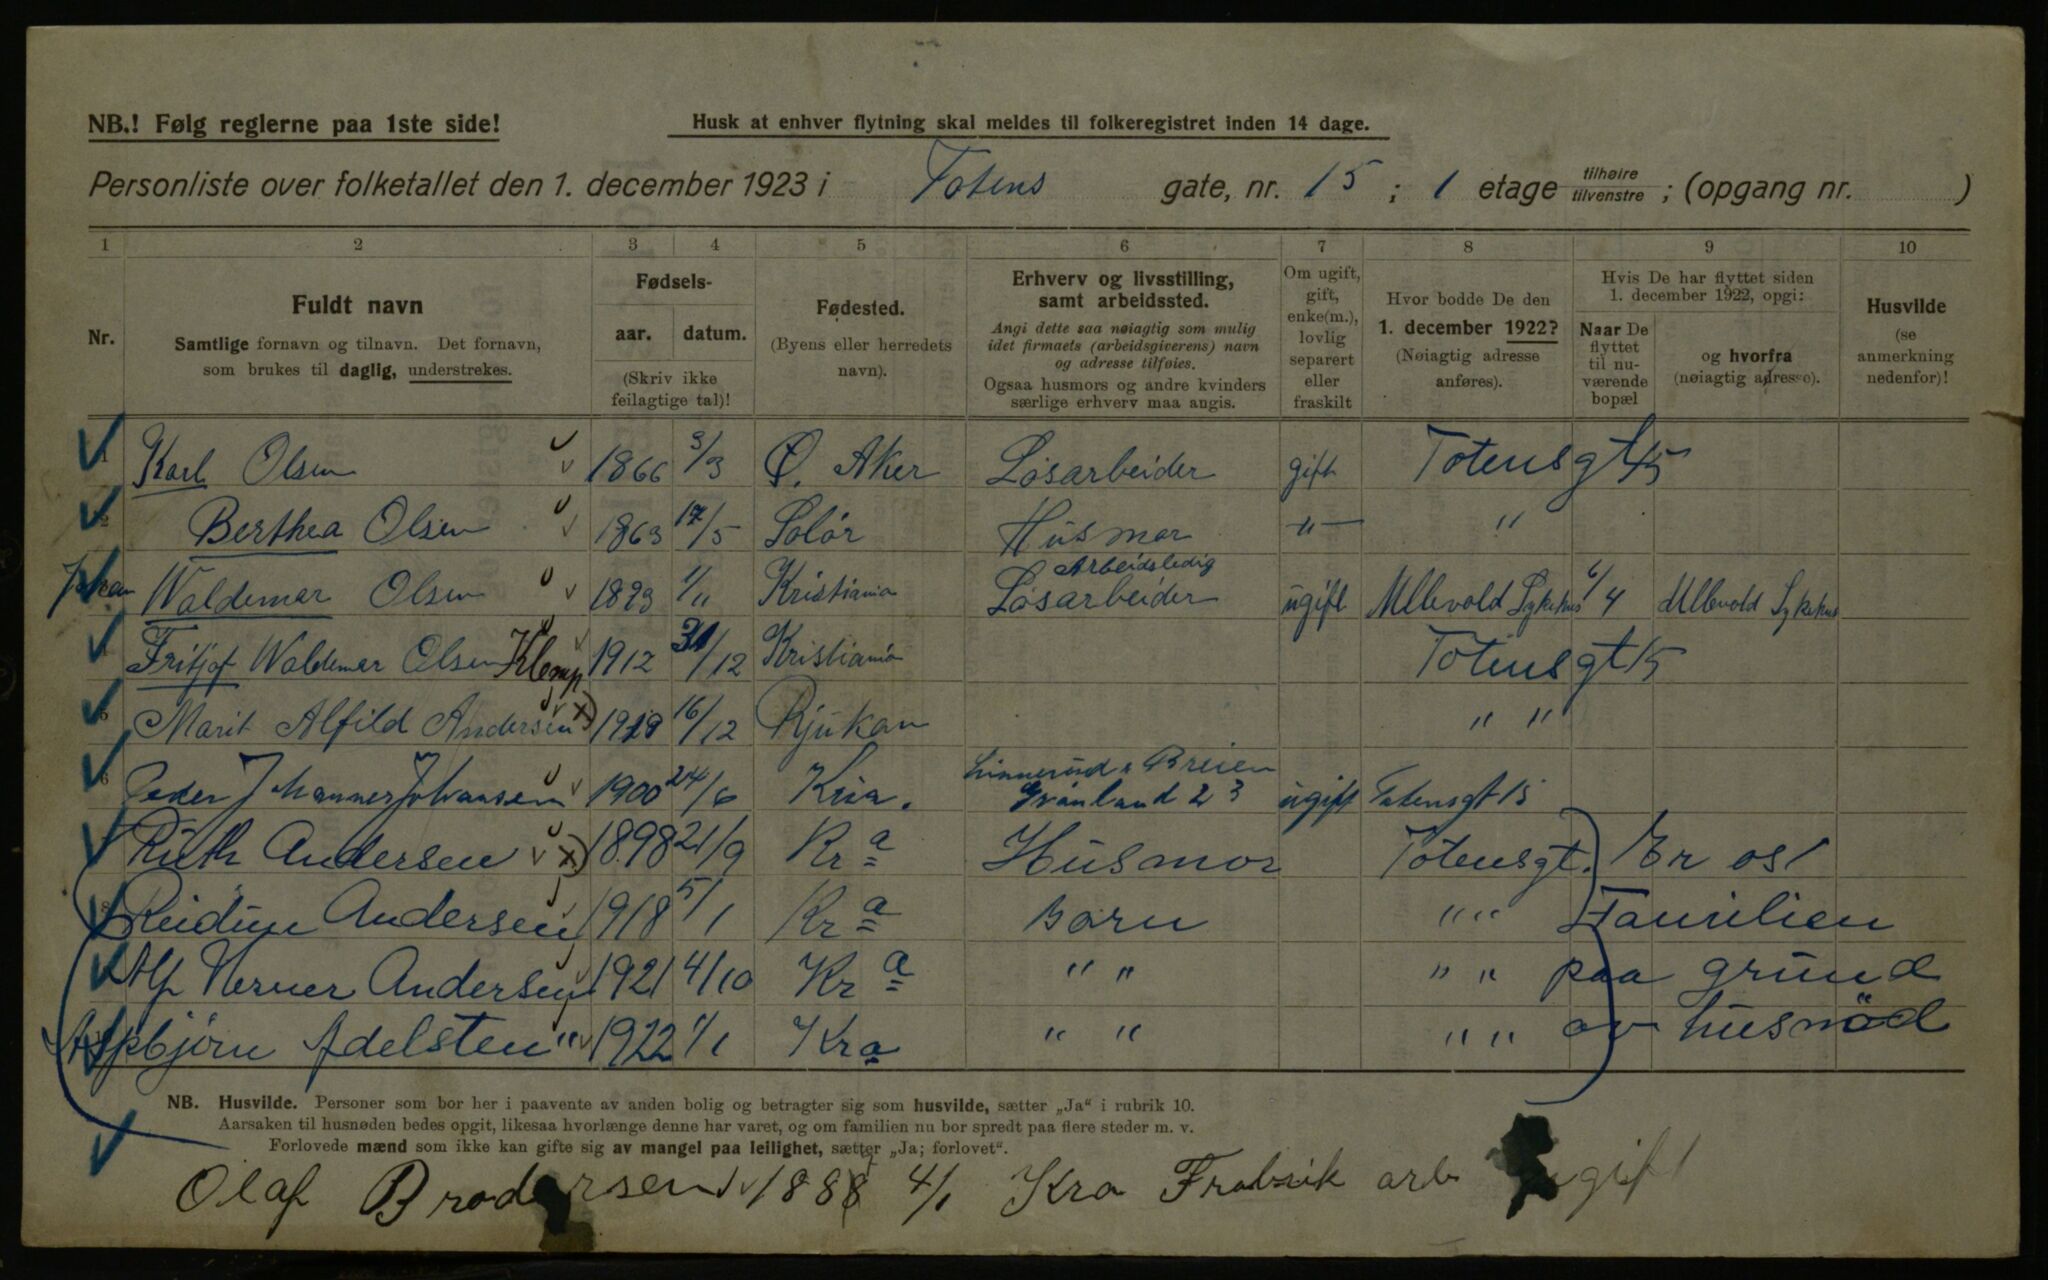 NB.! Følg reglerne paa 1ste side!
Husk at enhver flytning skal meldes til folkeregistret inden 14 dage.
Personliste over folketallet den 1. december 1923 i Totens gate, nr. 15 ; 1 etage tilhøire tilvenstre ; (opgang nr. )
1 2 3 4 5 6 7 8 9 10
Nr.
Fuldt navn
Samtlige fornavn og tilnavn. Det fornavn,
som brukes til daglig, understrekes.
Fødsels-
aar. datum.
(Skriv ikke
feilagtige tal)!
Fødested.
(Byens eller herredets
navn).
Erhverv og livsstilling,
samt arbeidssted.
Angi dette saa nøiagtig som mulig
idet firmaets (arbeidsgiverens) navn
og adresse tilføies.
Ogsaa husmors og andre kvinders
særlige erhverv maa angis.
Om ugift,
gift,
enke(m.),
lovlig
separert
eller
fraskilt
Hvor bodde De den
1. december 1922?
(Nøiagtig adresse
anføres).
Hvis De har flyttet siden
1. december 1922, opgi:
Naar De
flyttet
til nu-
værende
bopæl
og hvorfra
(nøiagtig adresse).
Husvilde
(se
anmerkning
nedenfor)!
1 Karl Olsen 1866 3/3 Ø. Aker Løsarbeider gift Totensgt 15
2 Berthea Olsen 1863 17/5 Solør Husmor -"- "
Johan Waldemar Olsen 1893 1/11 Kristiania Arbeidsledig Løsarbeider ugift Ullevold Sykehus 6/4 Ullevold Sykehus
Fritjof Waldemar Olsen Klemp 1912 31/12 Kristiania Totensgt 15
5 Marit Alfild Andersen x) 1919 16/12 Rjukan " "
6 Peder Johannes Johansen 1900 24/6 Kria. Breien Grønland 23 ugift Totensgt 15
Ruth Andersen x) 1898 21/9 Kra Husmor Totensgt. Er os
8 Reidun Andersen 1918 5/1 Kra Barn " " Familien
Alf Verner Andersen 1921 4/10 Kra " " " " paa grund
Asbjørn Adelsten " 1922 1/1 Kra " " " " av husnød
NB. Husvilde. Personer som bor her i paavente av anden bolig og betragter sig som husvilde, sætter „Ja" i rubrik 10.
Aarsaken til husnøden bedes opgit, likesaa hvorlænge denne har varet, og om familien nu bor spredt paa flere steder m. v.
Forlovede mænd som ikke kan gifte sig av mangel paa leilighet, sætter „Ja; forlovet".
Olaf Brodersen 1888 4/1 Kra Frabrik arb ugift